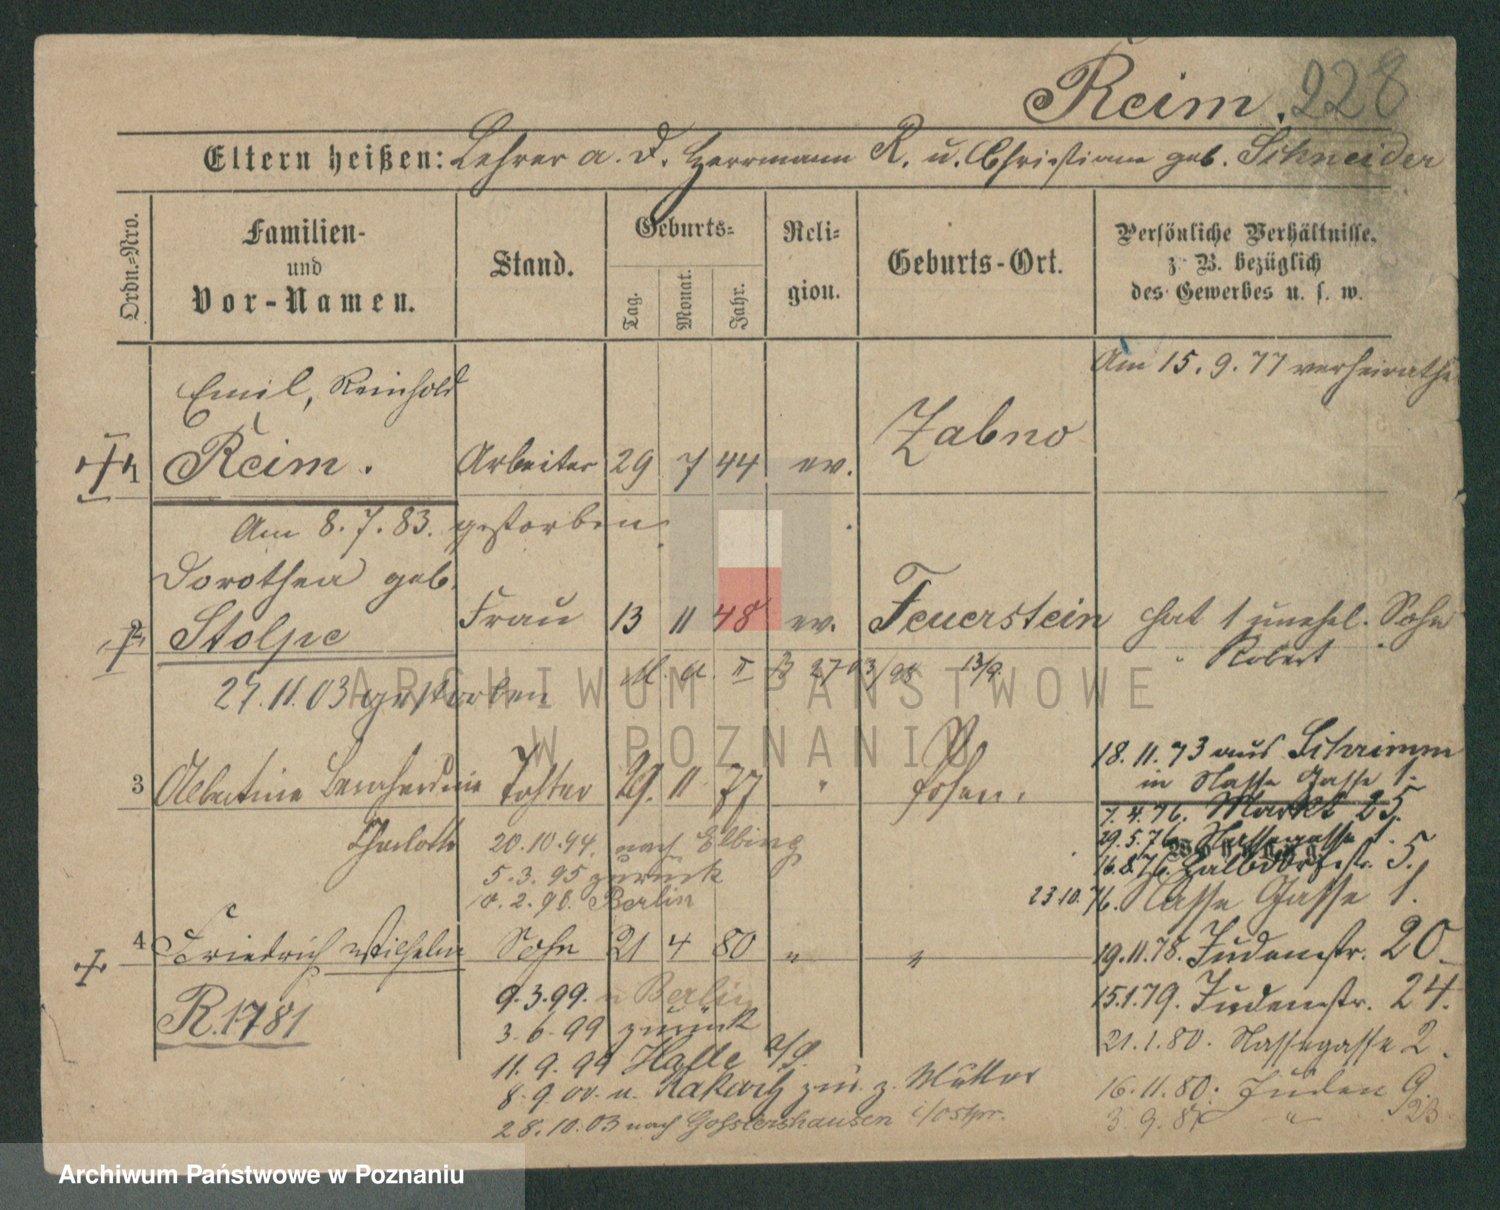 Reim. 228
Eltern heißen: Lehrer a. D. Herrmann R. u. Christiane geb. Schneider
Ordn.-Nro.
Familien-
und
Vor-Namen.
Stand.
Geburts-
Tag.
Monat.
Jahr.
Reli-
gion.
Geburts-Ort.
Persönliche Verhältnisse,
z. B. bezüglich
des Gewerbes u. s. w.
Am 15. 9. 77 verheirathe
Emil, Reinhold
1 Reim. Arbeiter 29 7 44 ev. Zabno
Am 8. 7. 83. gestorben
Dorothea geb.
2 Stolpe Frau 13 11 48 ev. Feuerstein hat 1 unehel. Sohn
Robert
27.11.03 gestorben
18. 11. 73 aus Schrimm
in Nasse Gasse 1.
3 Albertine Bernhardine Tochter 29. 11 77 " Posen.
Charlotte
7. 4. 76. Markt 25.
29. 5. 76. Nassegasse 1.
16. 8. 76. Halbdorfstr. 5.
23.10. 76. Nasse Gasse 1.
20. 10. 94. nach Elbing
5. 3. 95 zurück
2. 98. Berlin
4 Friedrich Wilhelm Sohn 21 4 80 " "
R. 1781
19. 11. 78. Judenstr. 20.
15. 1. 79. Judenstr. 24.
21. 1. 80. Nassegasse 2.
16. 11. 80. Juden 9
3. 9. 8 " 23
9. 3. 99. n Berlin
3. 6. 99 zurück
11. 9. 99 Halle
8. 9. 00. u. zur. z. Mutter
28. 10. 03 nach Gosslershausen
ARCHIWUM PAŃSTWOWE
W POZNANIU
Archiwum Państwowe w Poznaniu